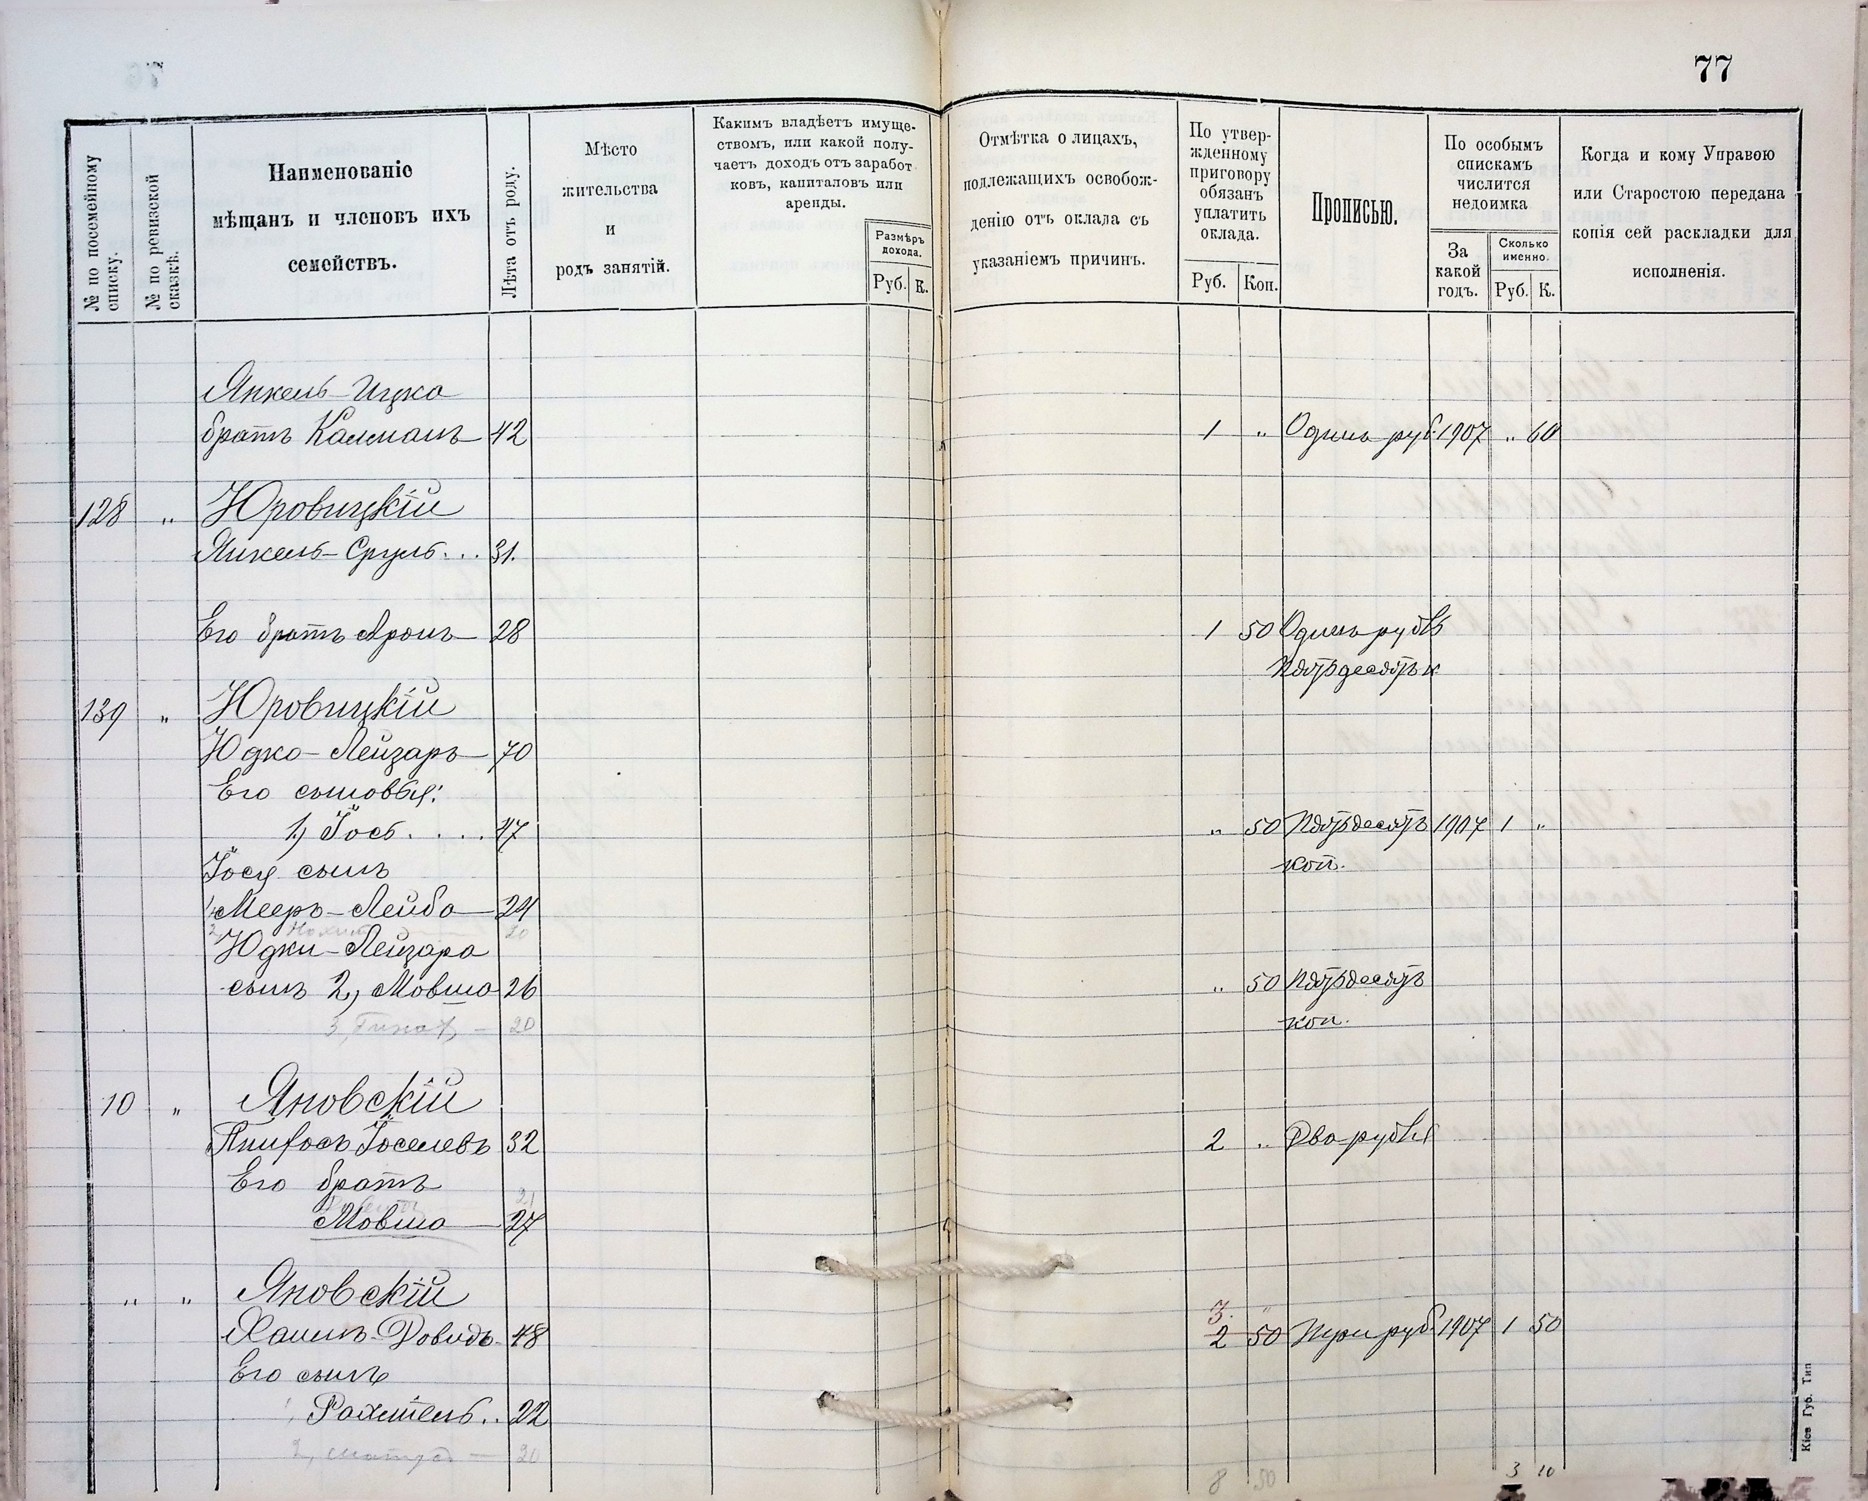 77
№ по посемейному списку.
№ по ревизской сказкѣ.
Наименованіе
мѣщанъ и членовъ ихъ
семействъ.
Лѣта отъ роду.
Мѣсто
жительства
и
родъ занятій.
Какимъ владѣетъ имуще-
ствомъ, или какой полу-
чаетъ доходъ отъ заработ
ковъ, капиталовъ или
аренды.
Размѣръ
дохода.
Руб. К.
Отмѣтка о лицахъ,
подлежащихъ освобож-
денію отъ оклада съ
указаніемъ причинъ.
По утвер-
жденному
приговору
обязанъ
уплатить
оклада.
Руб. Коп.
Прописью.
По особымъ
спискамъ
числится
недоимка
За
какой
годъ.
Сколько
именно.
Руб. К.
Когда и кому Управою
или Старостою передана
копія сей раскладки для
исполненія.
Янкель-Ицка
братъ Калманъ 42 1 " Одинъ руб. 1907 " 60
128 " Юровицкій
Янкель-Сруль... 31.
Его братъ Аронъ 28 1 50 Одинъ рубль
Пятьдесятъ к
139 " Юровицкій
Юдко-Лейзаръ 70
Его сыновья:
1) Іось.... 47 " 50 Пятьдесятъ 1907 1 "
Іося сынъ коп.
1, Мееръ-Лейба 24
2, 20
Юдки-Лейзара
сынъ 2, Мовша 26 " 50 Пятьдесятъ
3, — 20 коп.
10 " Яновскій
Пинхосъ Іоселевъ 32 2 " Два рубля
Его братъ
21
Мовша 27
" " Яновскій
Хаимъ-Довидъ 48 3. " 2 50 Три руб. 1907 1 50
Его сынъ
1, Рахмиель.. 22
2, — 20
8 50 3 10
Кіев Губ. Тип